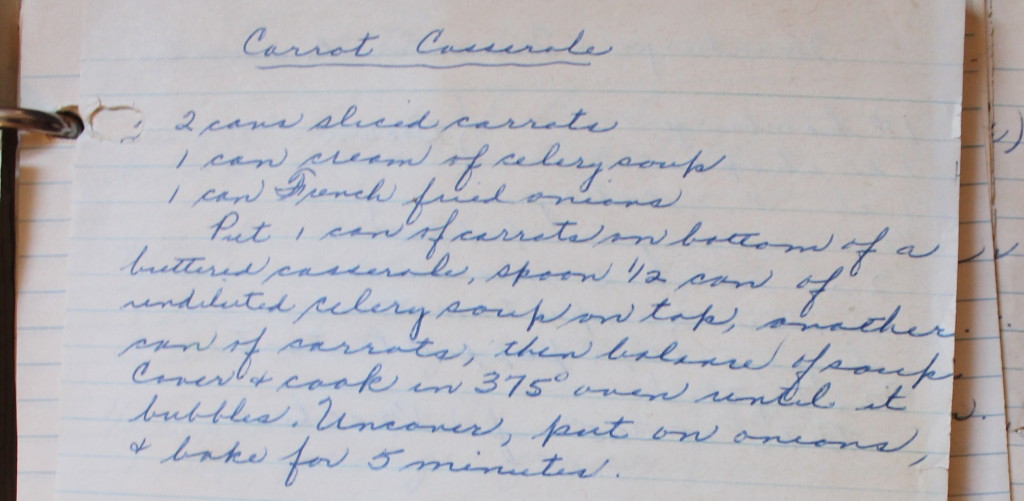 Carrot Casserole
2 cans sliced carrots
1 can cream of celery soup
1 can French fried onions
Put 1 can of carrots on bottom of a
buttered casserole, spoon 1/2 can of
undiluted celery soup on top, another
can of carrots, then balance of soup.
Cover & cook in 375° oven until it
bubbles. Uncover, put on onions,
& bake for 5 minutes.